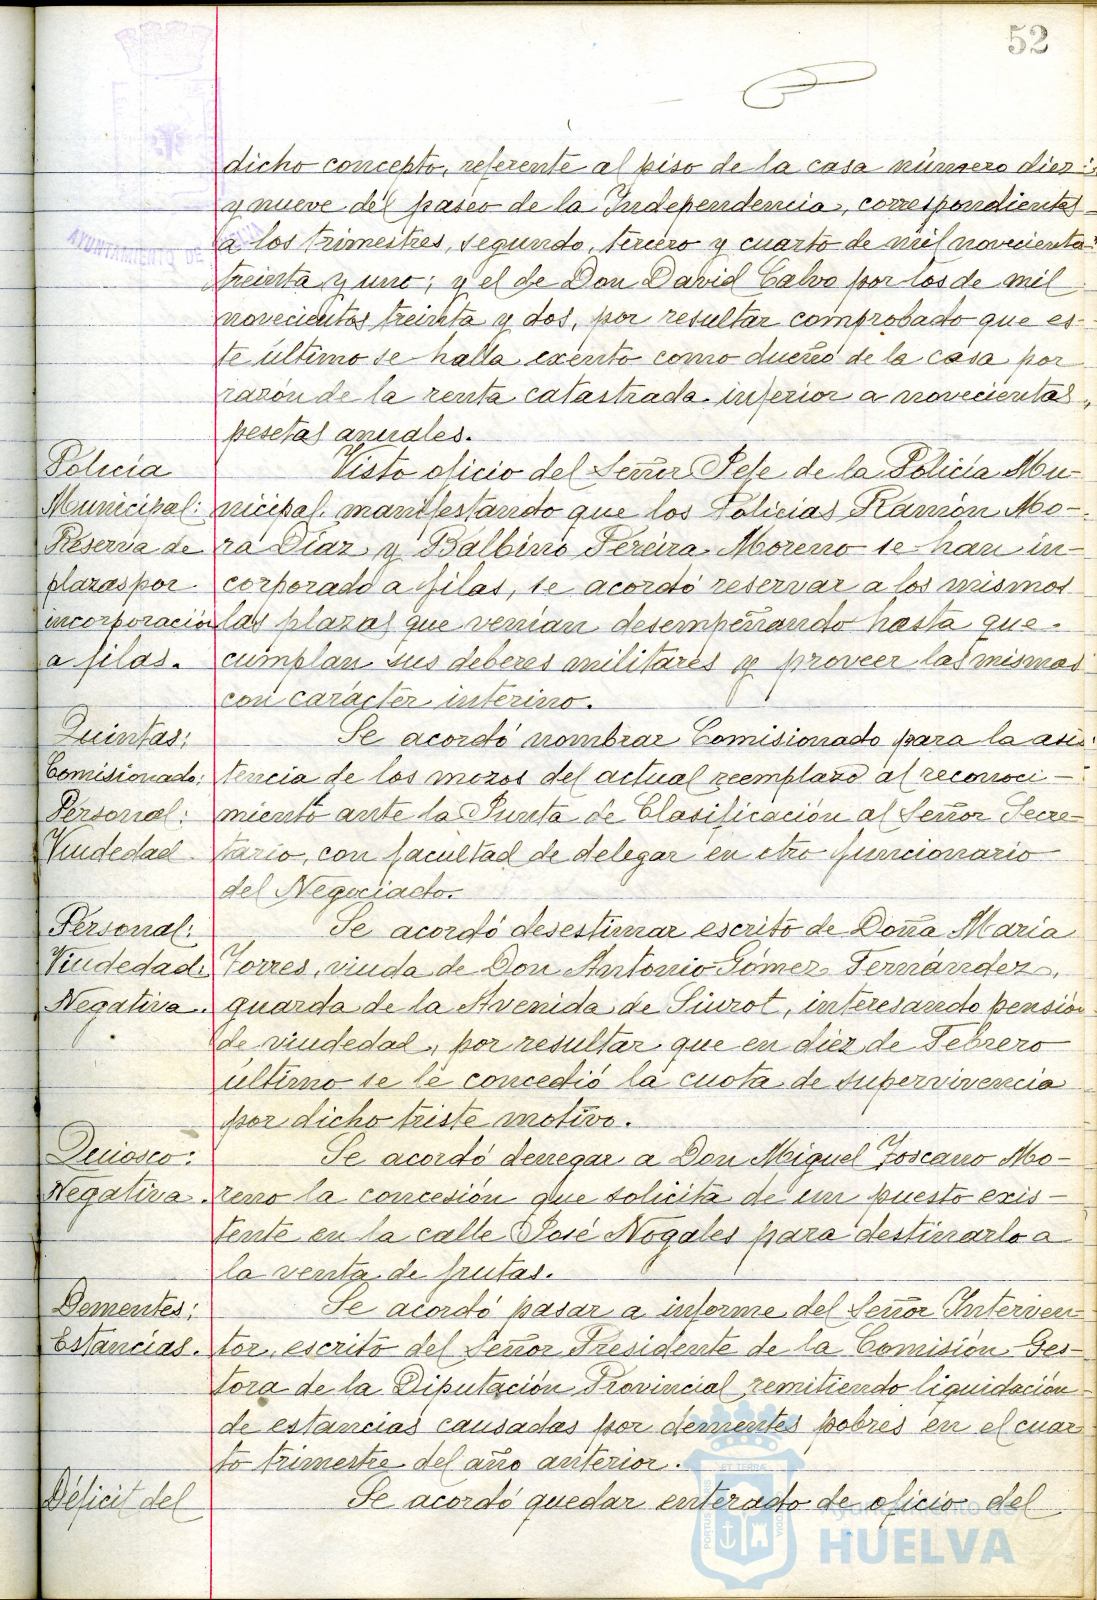 52
dicho concepto, referente al piso de la casa número diez
y nueve del paseo de la Independencia, correspondientes
a los trimestres, segundo, tercero y cuarto de mil novecientos
treinta y uno; y el de Don David Calvo por los de mil
novecientos treinta y dos, por resultar comprobado que es-
te último se halla exento como dueño de la casa por
razón de la renta catastrada inferior a novecientas
pesetas anuales.
Policía
Municipal:
Reserva de
plazas por
incorporación
a filas.
Visto oficio del Señor Jefe de la Policía Mu-
nicipal, manifestando que los Policías Ramón Mo-
ra Díaz y Balbino Pereira Moreno se han in-
corporado a filas, se acordó reservar a los mismos
las plazas que venían desempeñando hasta que
cumplan sus deberes militares y proveer las mismas
con carácter interino.
Quintas:
Comisionado:
Personal:
Viudedad
Se acordó nombrar Comisionado para la asis-
tencia de los mozos del actual reemplazo al reconoci-
miento ante la Junta de Clasificación al Señor Secre-
tario, con facultad de delegar en otro funcionario
del Negociado.
Personal:
Viudedad:
Negativa.
Se acordó desestimar escrito de Doña María
Torres, viuda de Don Antonio Gómez Fernández,
guarda de la Avenida de Siurot, interesando pensión
de viudedad, por resultar que en diez de Febrero
último se le concedió la cuota de supervivencia
por dicho triste motivo.
Quiosco:
Negativa.
Se acordó denegar a Don Miguel Toscano Mo-
reno la concesión que solicita de un puesto exis-
tente en la calle José Nogales para destinarlo a
la venta de frutas.
Dementes:
Estancias.
Se acordó pasar a informe del Señor Interven-
tor, escrito del Señor Presidente de la Comisión Ges-
tora de la Diputación Provincial remitiendo liquidación
de estancias causadas por dementes pobres en el cuar
to trimestre del año anterior.
Déficit del
Se acordó quedar enterado de oficio del
AYUNTAMIENTO DE
Ayuntamiento de
HUELVA